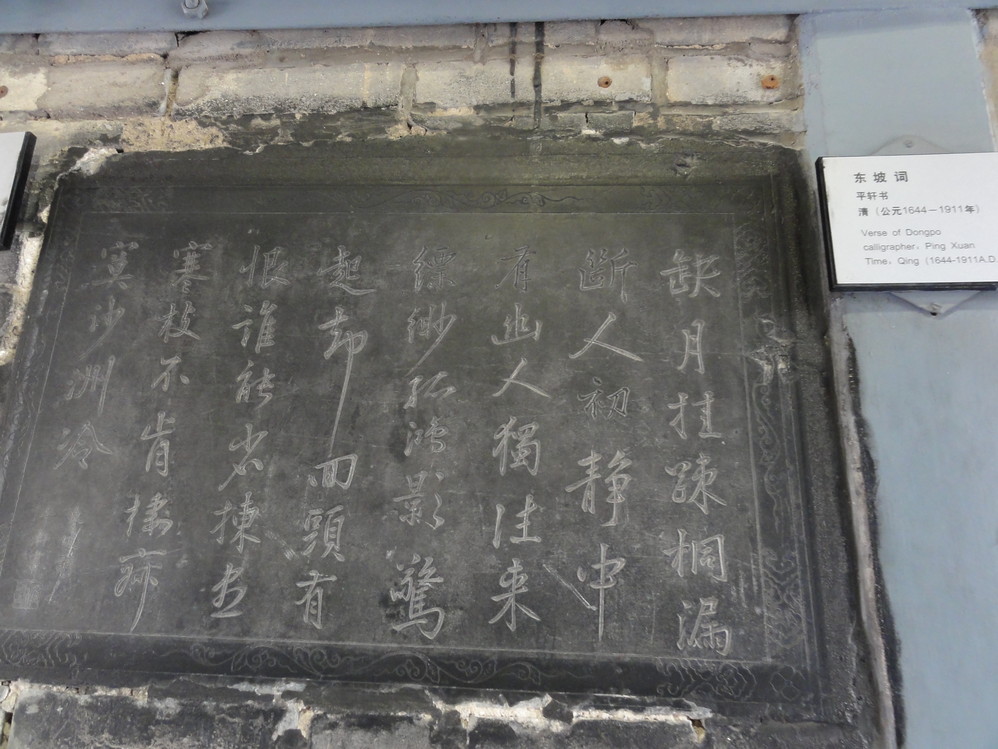 缺月挂疎桐漏
斷人初静中
有幽人獨往来
縹緲孤鴻影驚
起却回頭有
恨誰能省揀尽
寒枝不肯棲寂
寞沙洲冷
东坡词
平轩书
清（公元1644－1911年）
Verse of Dongpo
calligrapher, Ping Xuan
Time, Qing (1644-1911A.D.